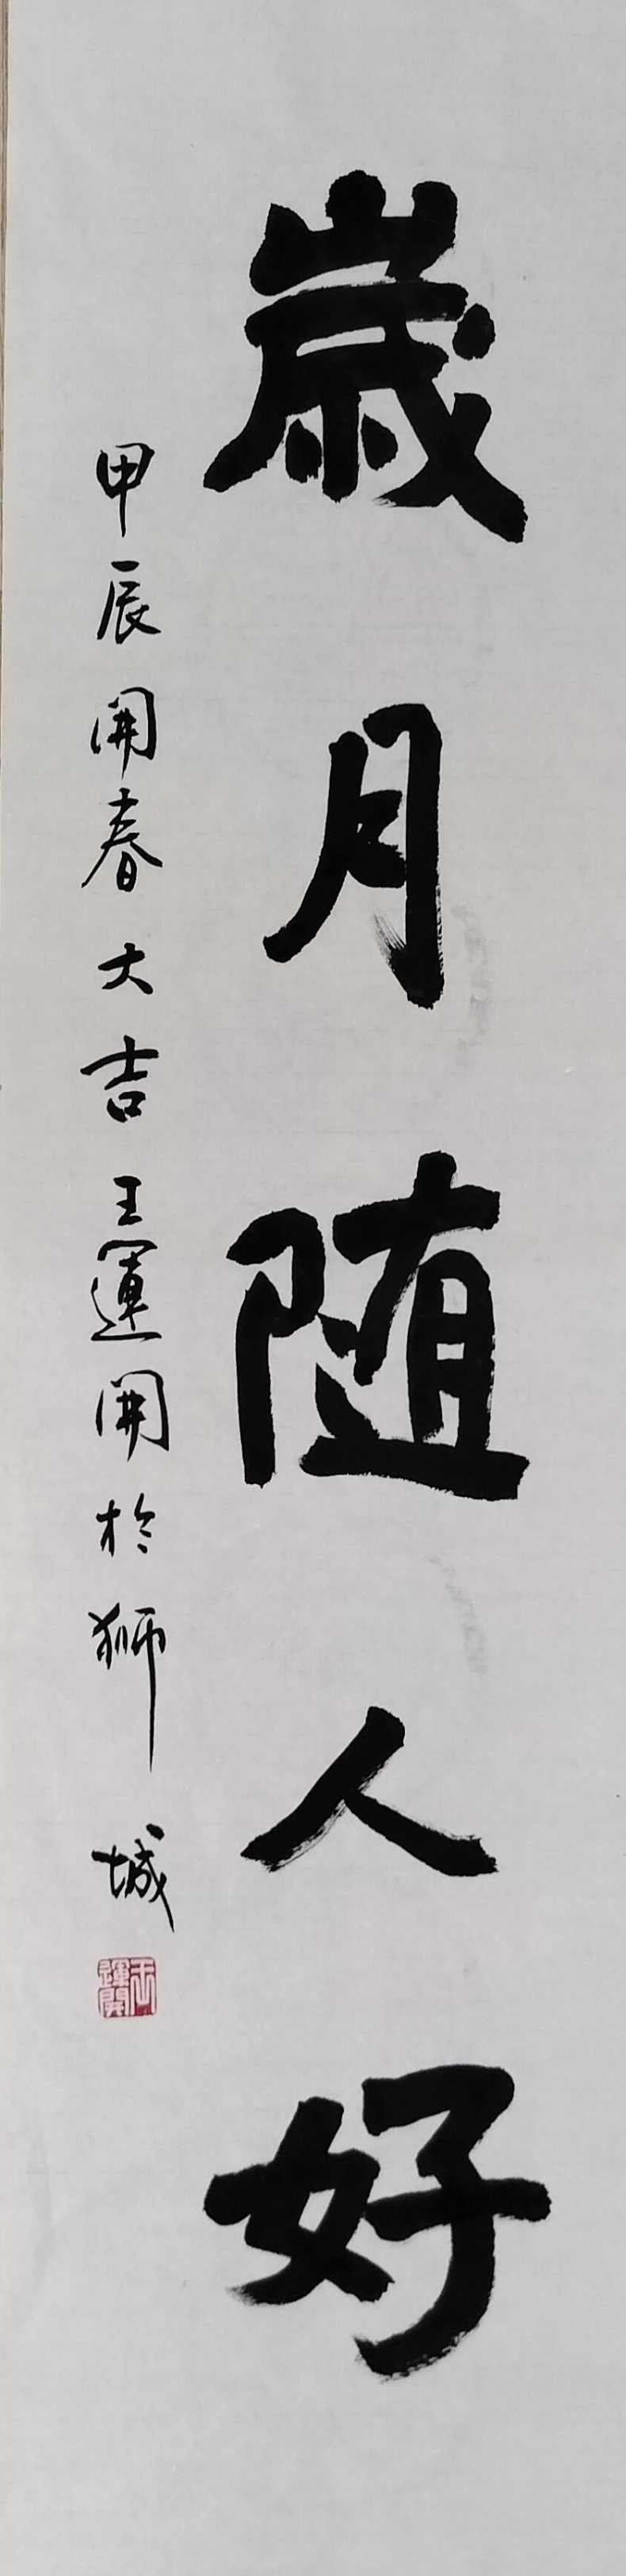 歳月随人好
甲辰開春大吉王運開於獅城
王運開